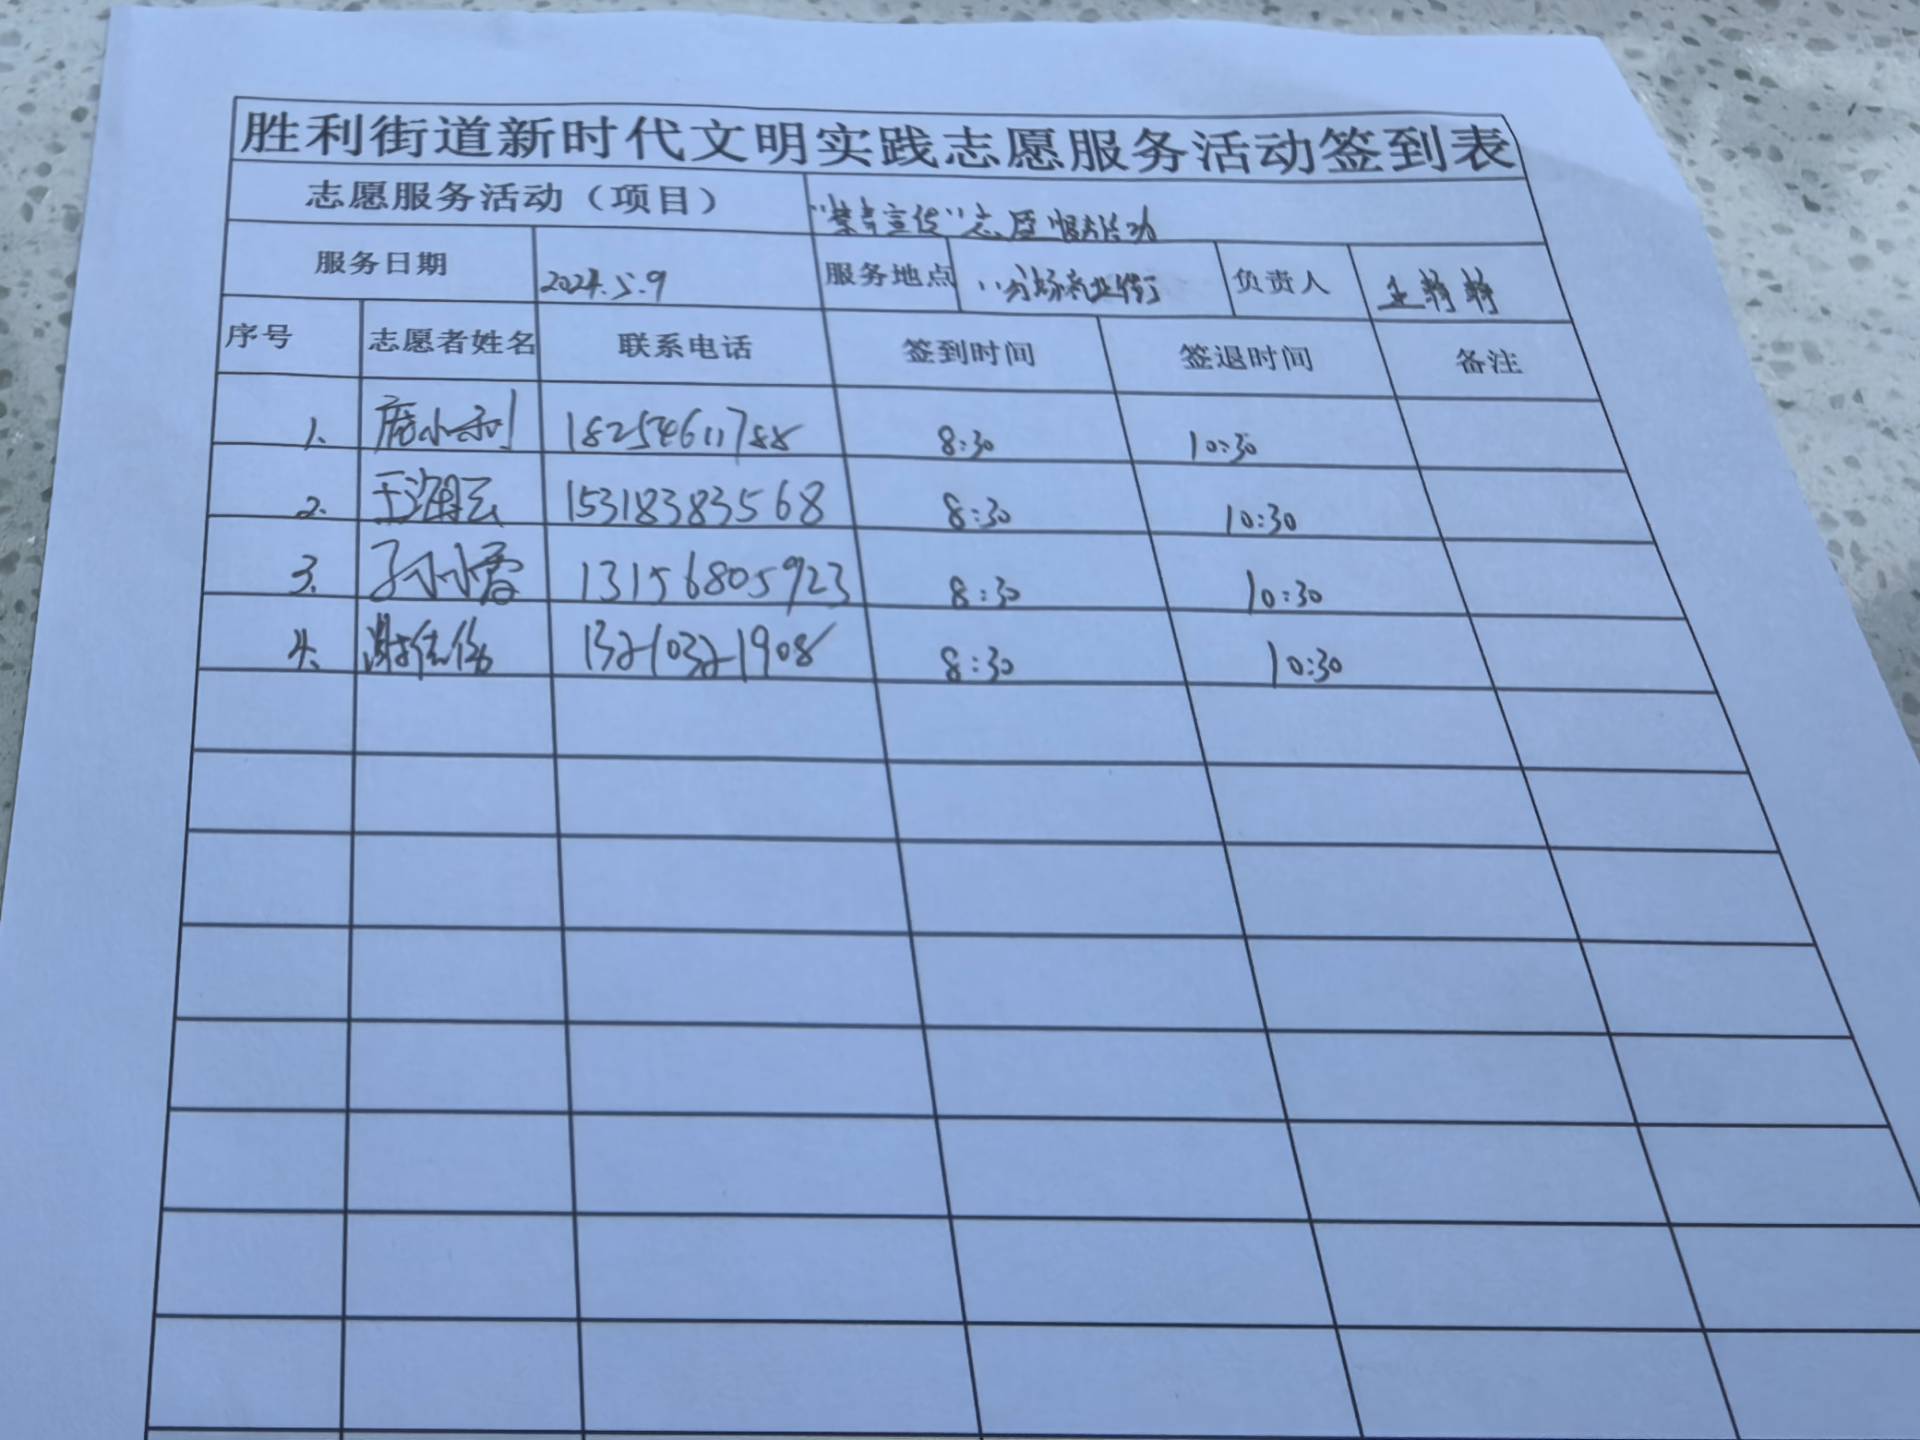 胜利街道新时代文明实践志愿服务活动签到表
志愿服务活动（项目） “禁毒宣传”志愿服务活动
服务日期 2024.5.9 服务地点 八分场商业街 负责人 王婷婷
序号 志愿者姓名 联系电话 签到时间 签退时间 备注
1. 席小利 18254611788 8:30 10:30
2. 王海云 15318383568 8:30 10:30
3. 孙小雪 13156805923 8:30 10:30
4. 谢 13210321908 8:30 10:30